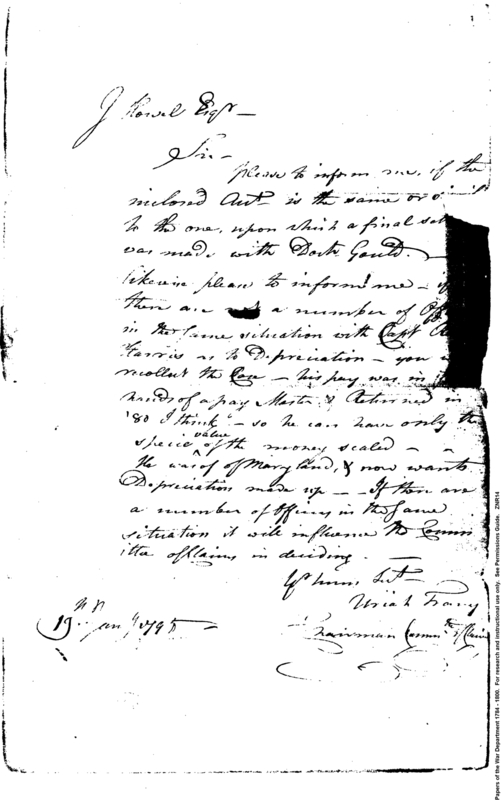 J Howel Esqr —
Sir —
please to inform me, if the
inclosed Acct. is the same or
to the one, upon which a final
was made with Doctr Gould. —
likewise please to inform me —
there are a number of
in the same situation with Capt
Harris as to Depreciation — you
recollect the Case — his pay was in
hands of a pay Master & Returned in
'80 I think — so he can have only the
specie value of the money scaled —
He was of Maryland, & now wants
Depreciation made up — If there are
a number of Officers in the same
situation it will influence the Comm
ittee of Claims in deciding. —
Yr hum Svt —
Uriah Tracy
Chairman Commtee of Claims
19 Jany 179
Papers of the War Department 1784 - 1800. For research and instructional use only. See Permissions Guide. ZNR14